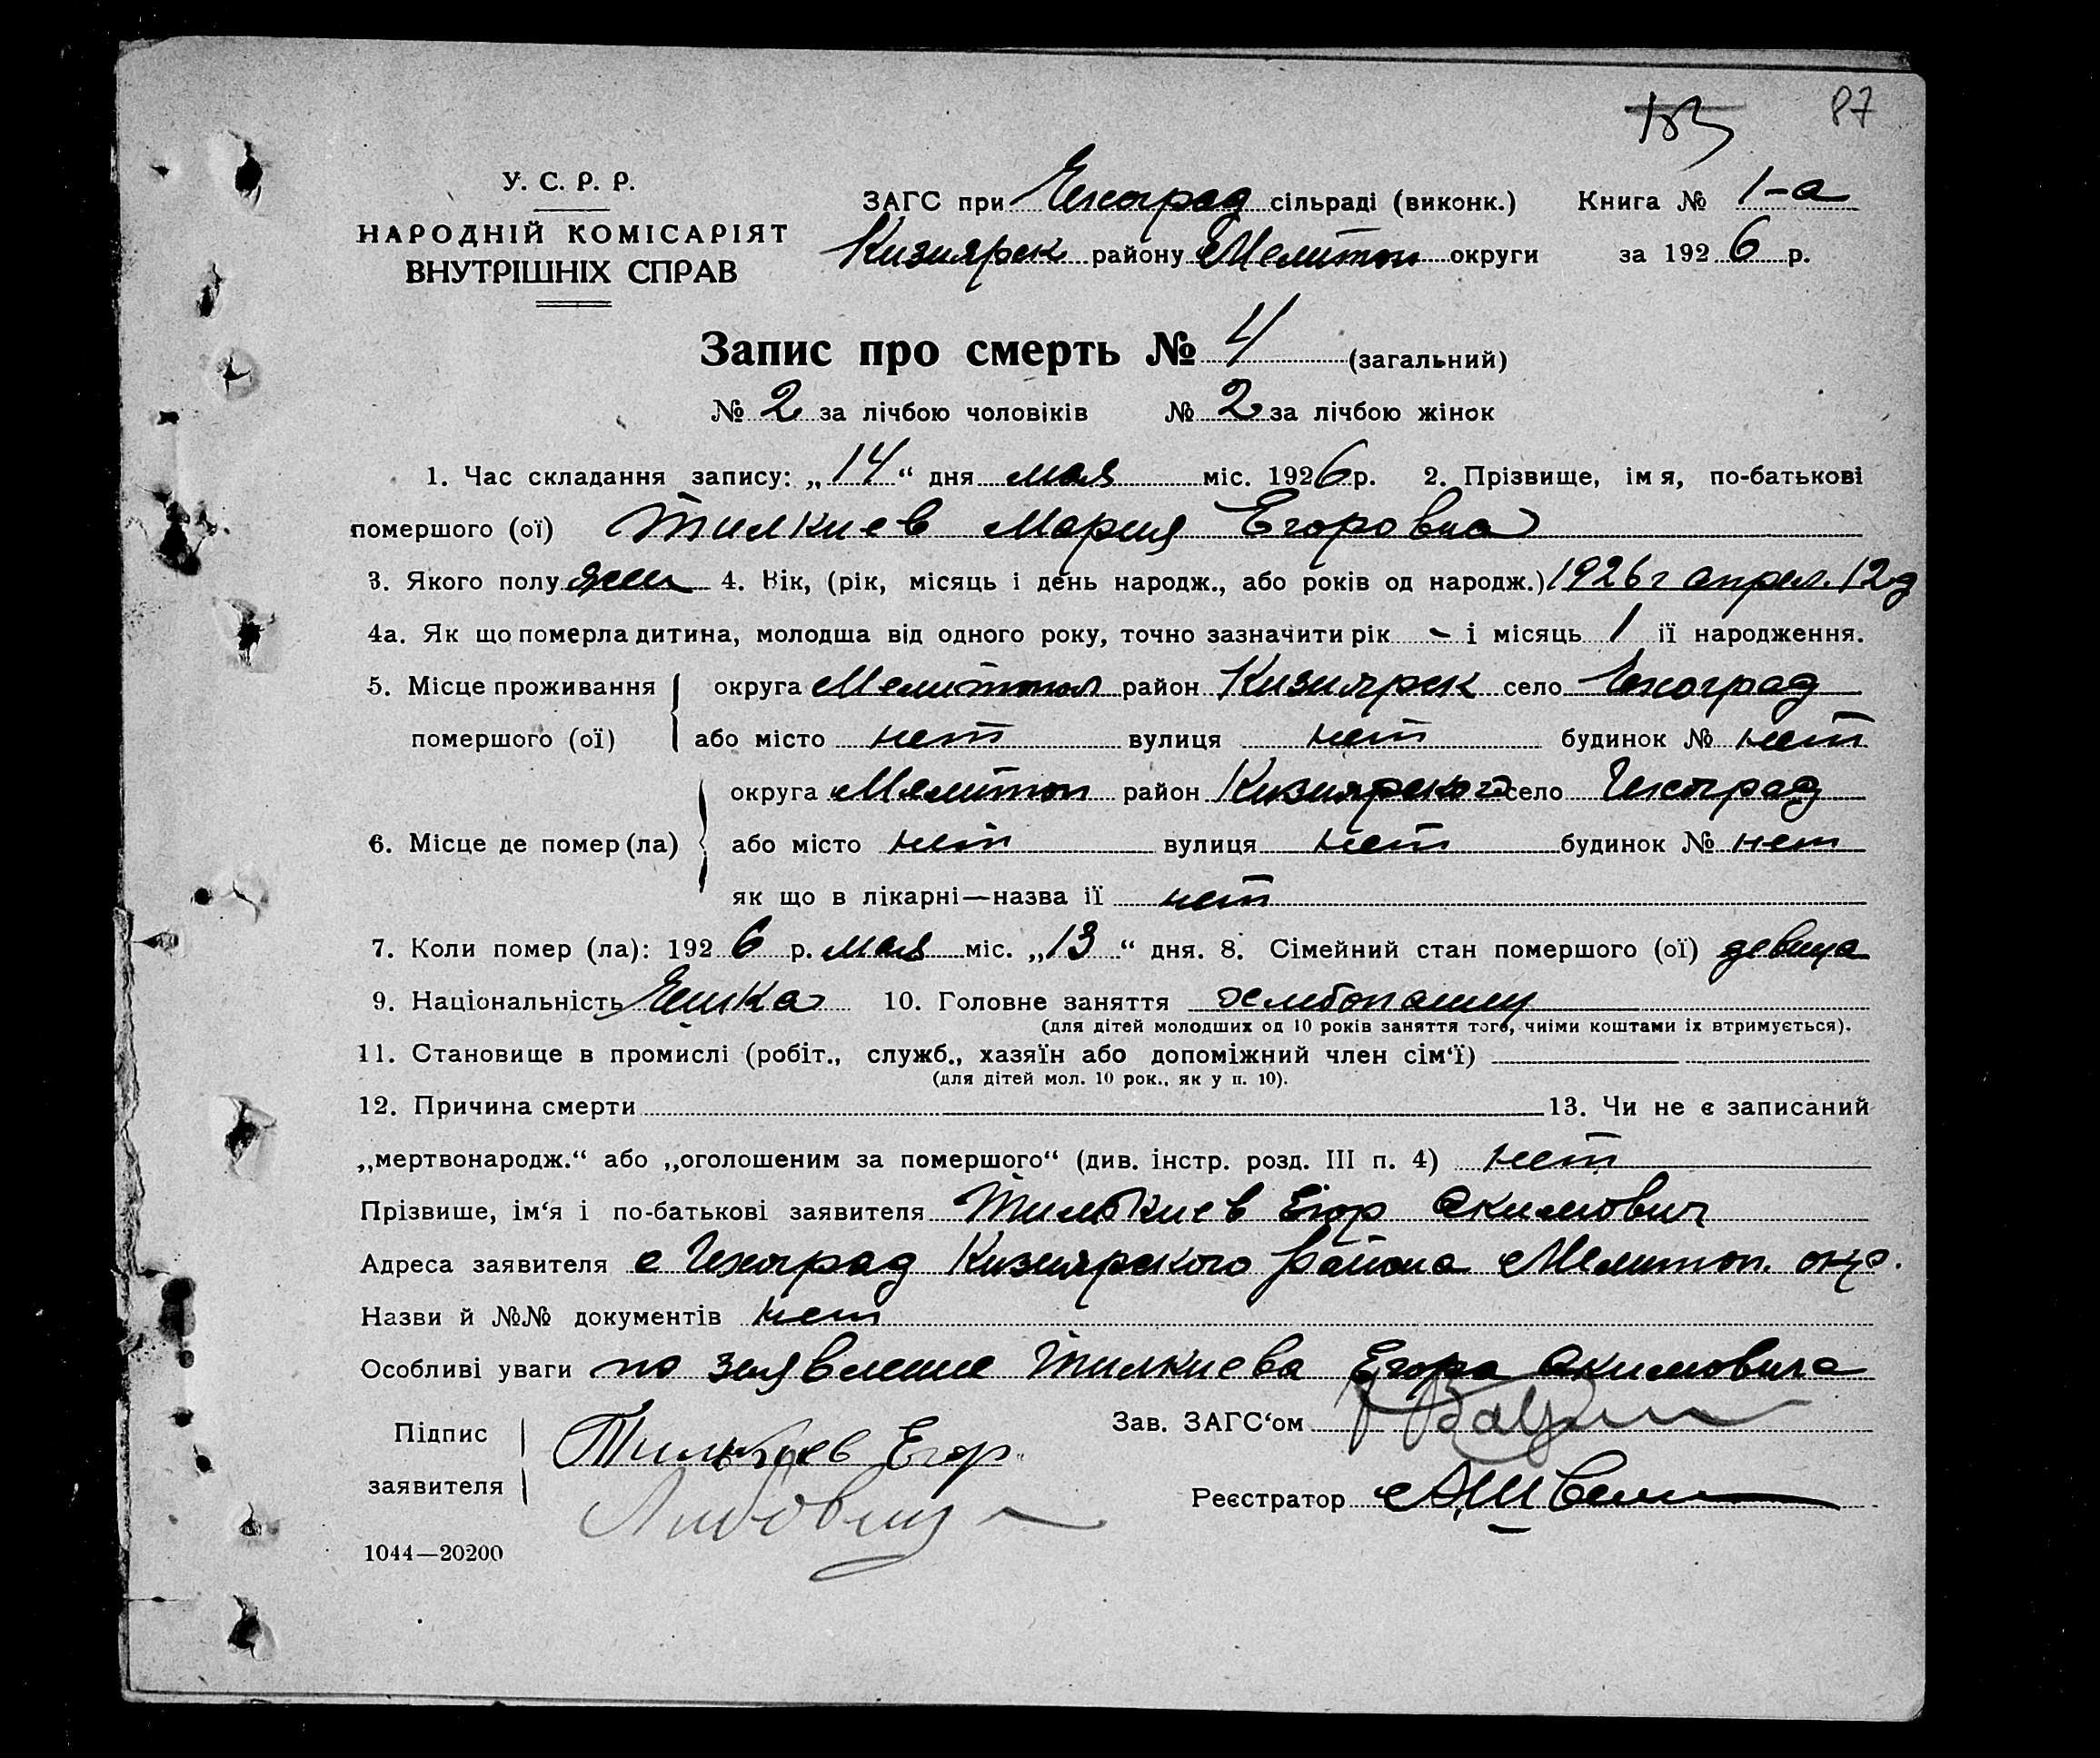 87
У. С. Р. Р.
НАРОДНІЙ КОМІСАРІЯТ
ВНУТРІШНІХ СПРАВ
ЗАГС при Чехоград сільраді (виконк.) Книга № 1-а
Кизиярск району Мелитоп округи за 1926 р.
Запис про смерть № 4 (загальний)
№ 2 за лічбою чоловіків № 2 за лічбою жінок
1. Час складання запису: „14“ дня мая міс. 1926 р. 2. Прізвище, імя, по-батькові
помершого (ої) Тилкиев Мария Егоровна
3. Якого полу жен 4. Вік, (рік, місяць і день народж., або років од народж.) 1926 г апрел. 12 д
4а. Як що померла дитина, молодша від одного року, точно зазначити рік - і місяць 1 її народження.
5. Місце проживання округа Мелитопол район Кизиярск село Чехоград
помершого (ої) або місто нет вулиця нет будинок № нет
округа Мелитоп район Кизиярского село Чехоград
6. Місце де помер (ла) або місто нет вулиця нет будинок № нет
як що в лікарні—назва її нет
7. Коли помер (ла): 1926 р. мая міс. „13“ дня. 8. Сімейний стан помершого (ої) девица
9. Національність Чешка 10. Головне заняття
(для дітей молодших од 10 років заняття того, чиїми коштами їх втримується).
11. Становище в промислі (робіт., служб., хазяїн або допоміжний член сім‘ї)
(для дітей мол. 10 рок., як у п. 10).
12. Причина смерти 13. Чи не є записаний
„мертвонародж.“ або „оголошеним за помершого“ (див. інстр. розд. III п. 4) нет
Прізвише, ім‘я і по-батькові заявителя Тилькиев Егор Якимович
Адреса заявителя с Чехоград Кизиярского района Мелитоп. окр.
Назви й №№ документів нет
Особливі уваги по заявление Тилкиева Егора Якимовича
Підпис Тилькиев Егор Зав. ЗАГС‘ом
заявителя Реєстратор
1044—20200